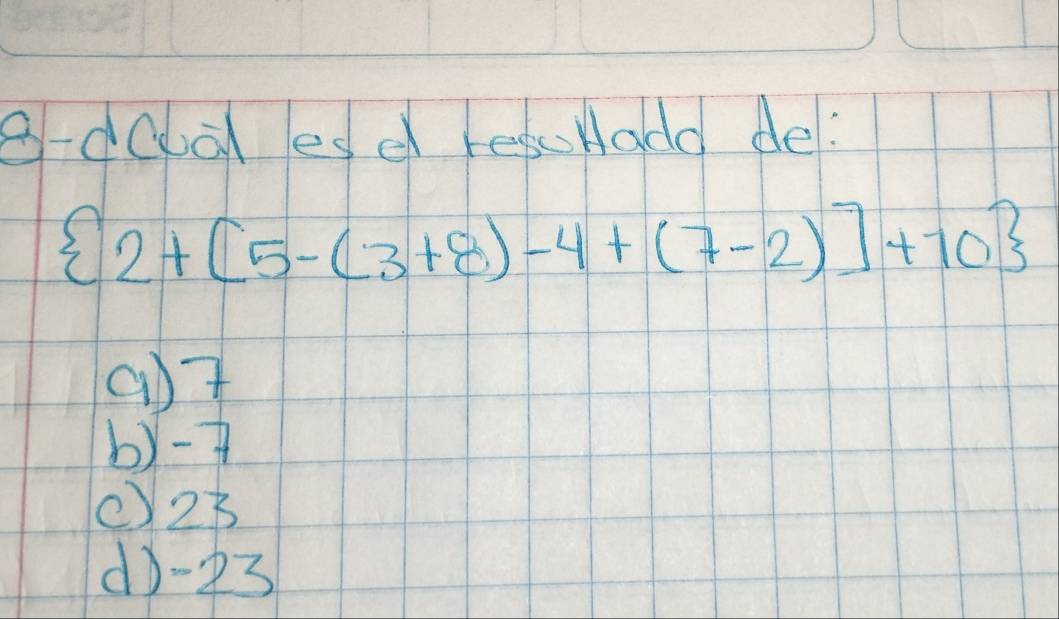 8-¿Cuál es el resultado de:
{2+[5-(3+8)-4+(7-2)]+10}
a) 7
b) -7
c) 23
d) -23